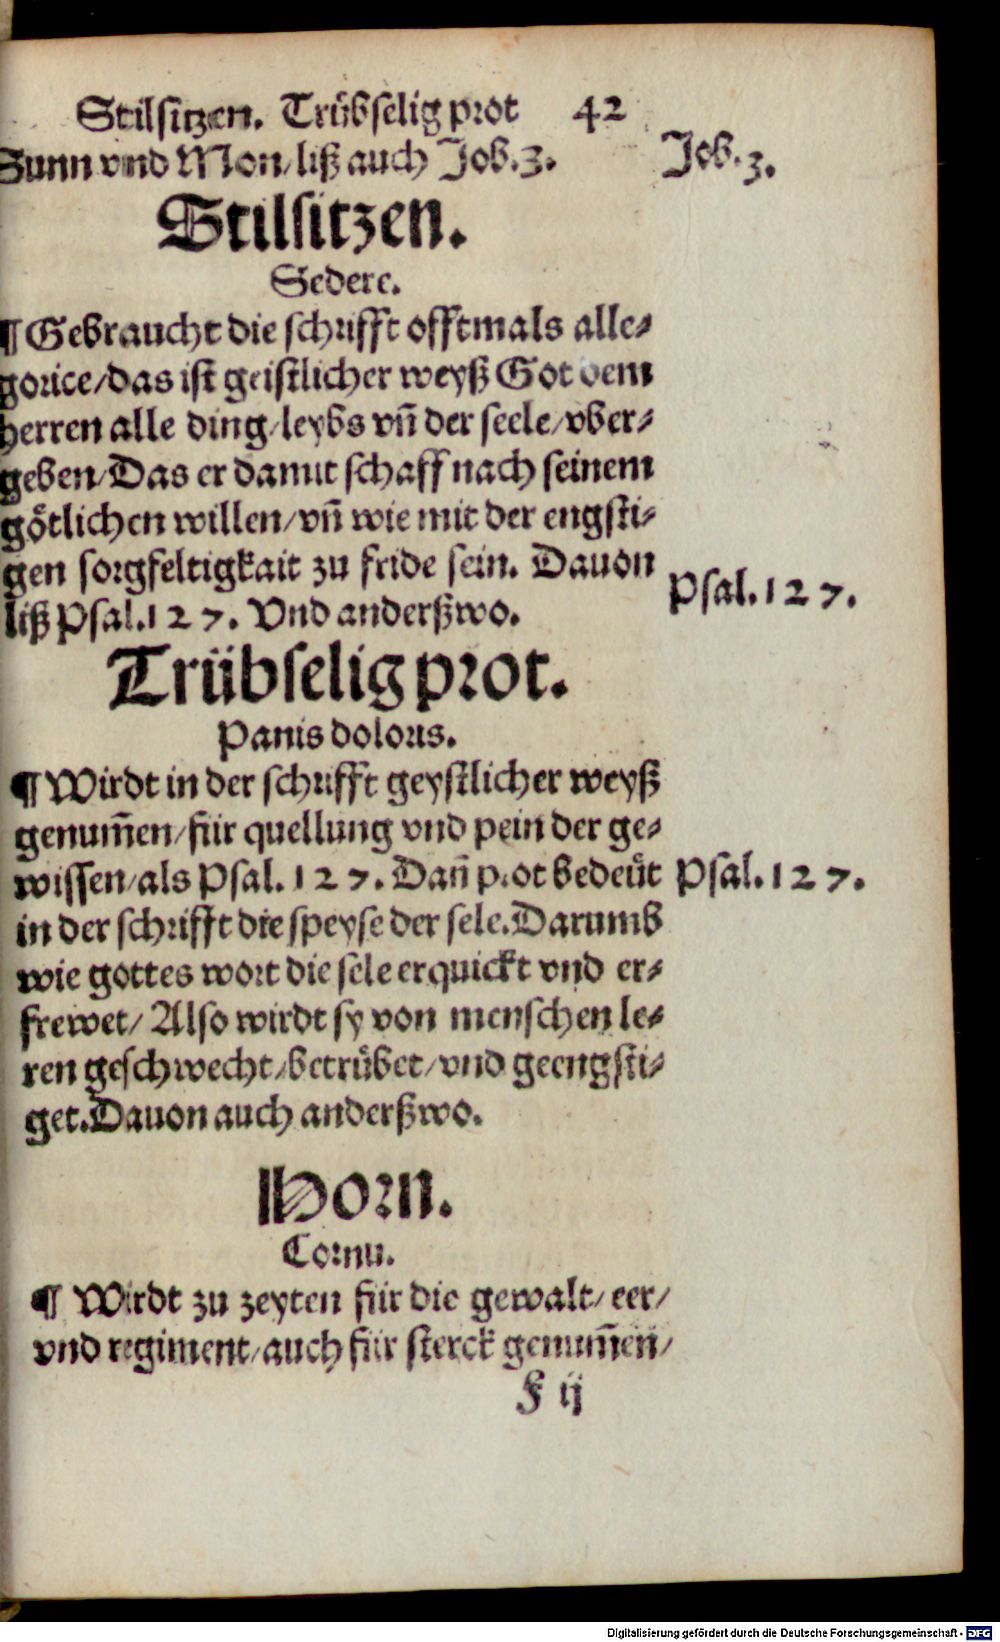 Stilsitzen. Trübselig prot 42
Sunn vnd Mon/ liß auch Job.3. Job.3.
Stilsitzen.
Sedere.
¶ Gebraucht die schrifft offtmals alle⸗
gorice/ das ist geistlicher weyß Got dem
herren alle ding/ leybs vñ der seele/ vber⸗
geben/ Das er damit schaff nach seinem
götlichen willen/ vñ wie mit der engsti⸗
gen sorgfeltigkait zu fride sein. Dauon
liß Psal.127. Vnd anderßwo. Psal.127.
Trübselig prot.
Panis doloris.
¶ Wirdt in der schrifft geystlicher weyß
genum̃en/ für quellung vnd pein der ge⸗
wissen/ als Psal.127. Dañ prot bedeüt Psal.127.
in der schrifft die speyse der sele. Darumb
wie gottes wort die sele erquickt vnd er⸗
frewet/ Also wirdt sy von menschen le⸗
ren geschwecht/ betrübet/ vnd geengsti⸗
get. Dauon auch anderßwo.
Horn.
Cornu.
¶ Wirdt zu zeyten für die gewalt/ eer/
vnd regiment/ auch für sterck genum̃en/
F ij
Digitalisierung gefördert durch die Deutsche Forschungsgemeinschaft - DFG